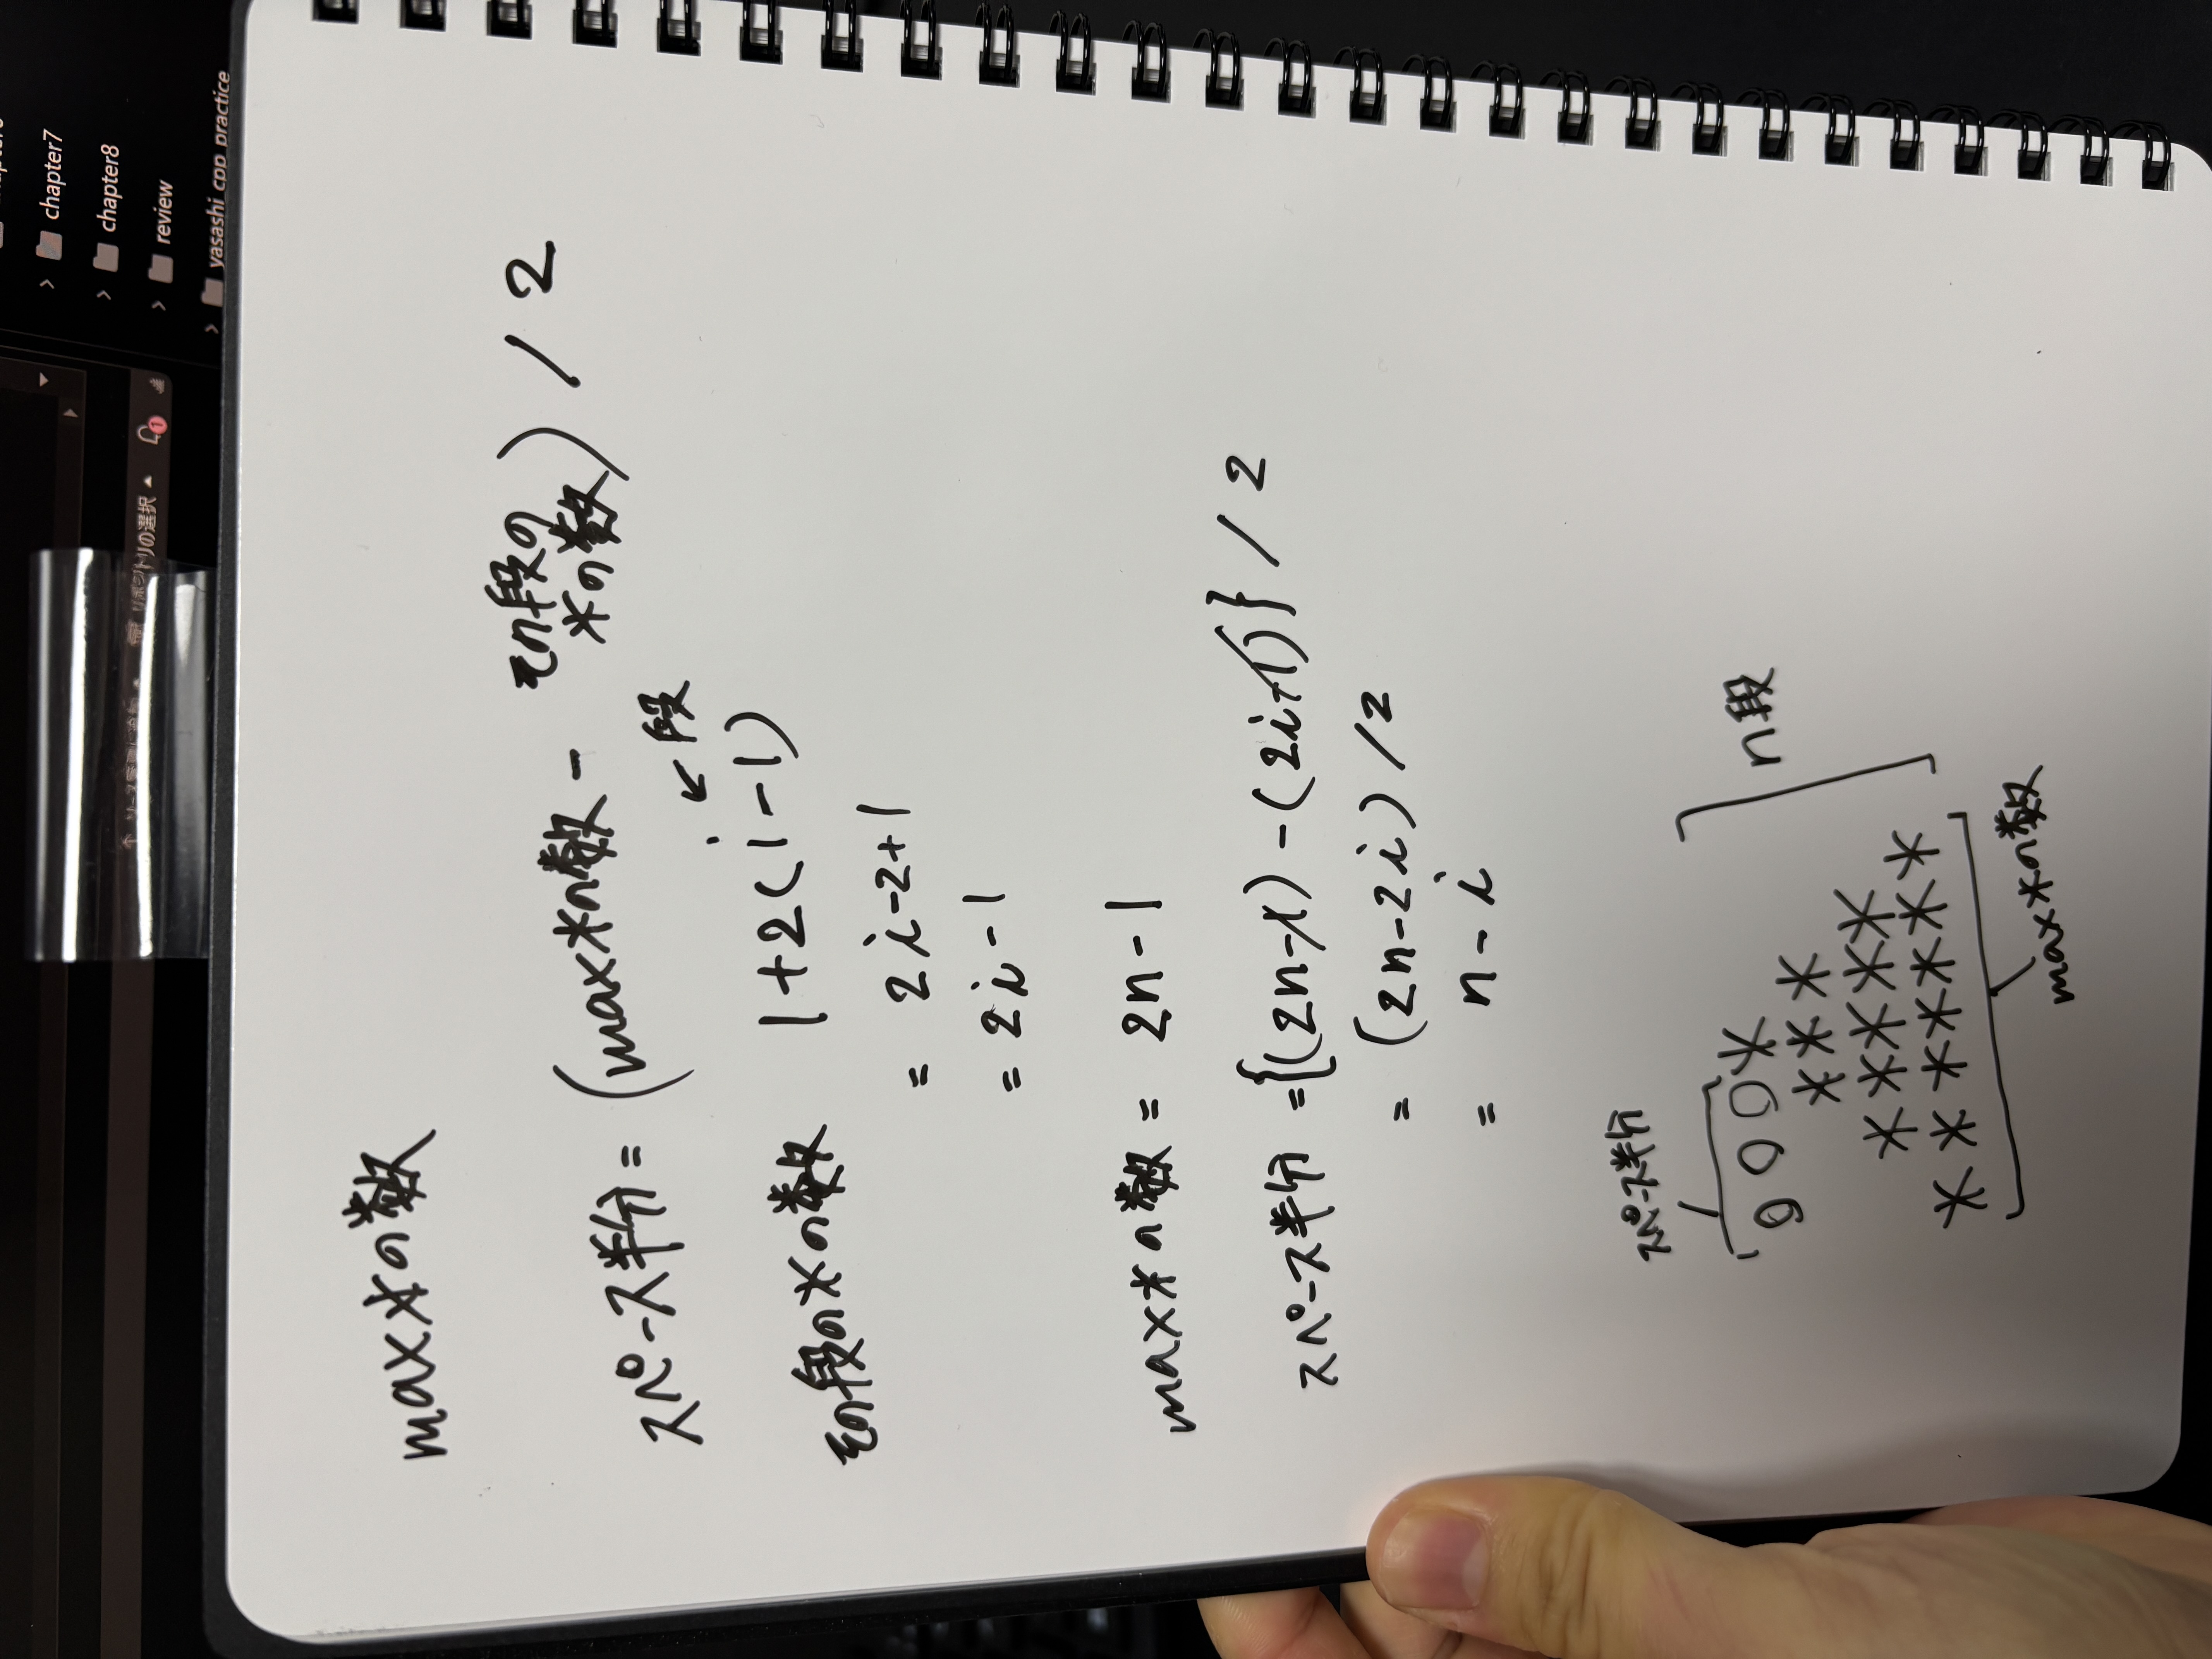 chapter7
chapter8
リポジトリの選択
1
review
yasashi_cpp_practice
max*の数
スペース半分=(max*の数-その段の*の数)/2
←段
その段の*の数 1+2(i-1)
= 2i-2+1
= 2i-1
max*の数= 2n-1
スペース半分={(2n-1)-(2i-1)}/2
= (2n-2i)/2
= n-i
スペース半分
000*
***
*****
*******
n段
max*の数